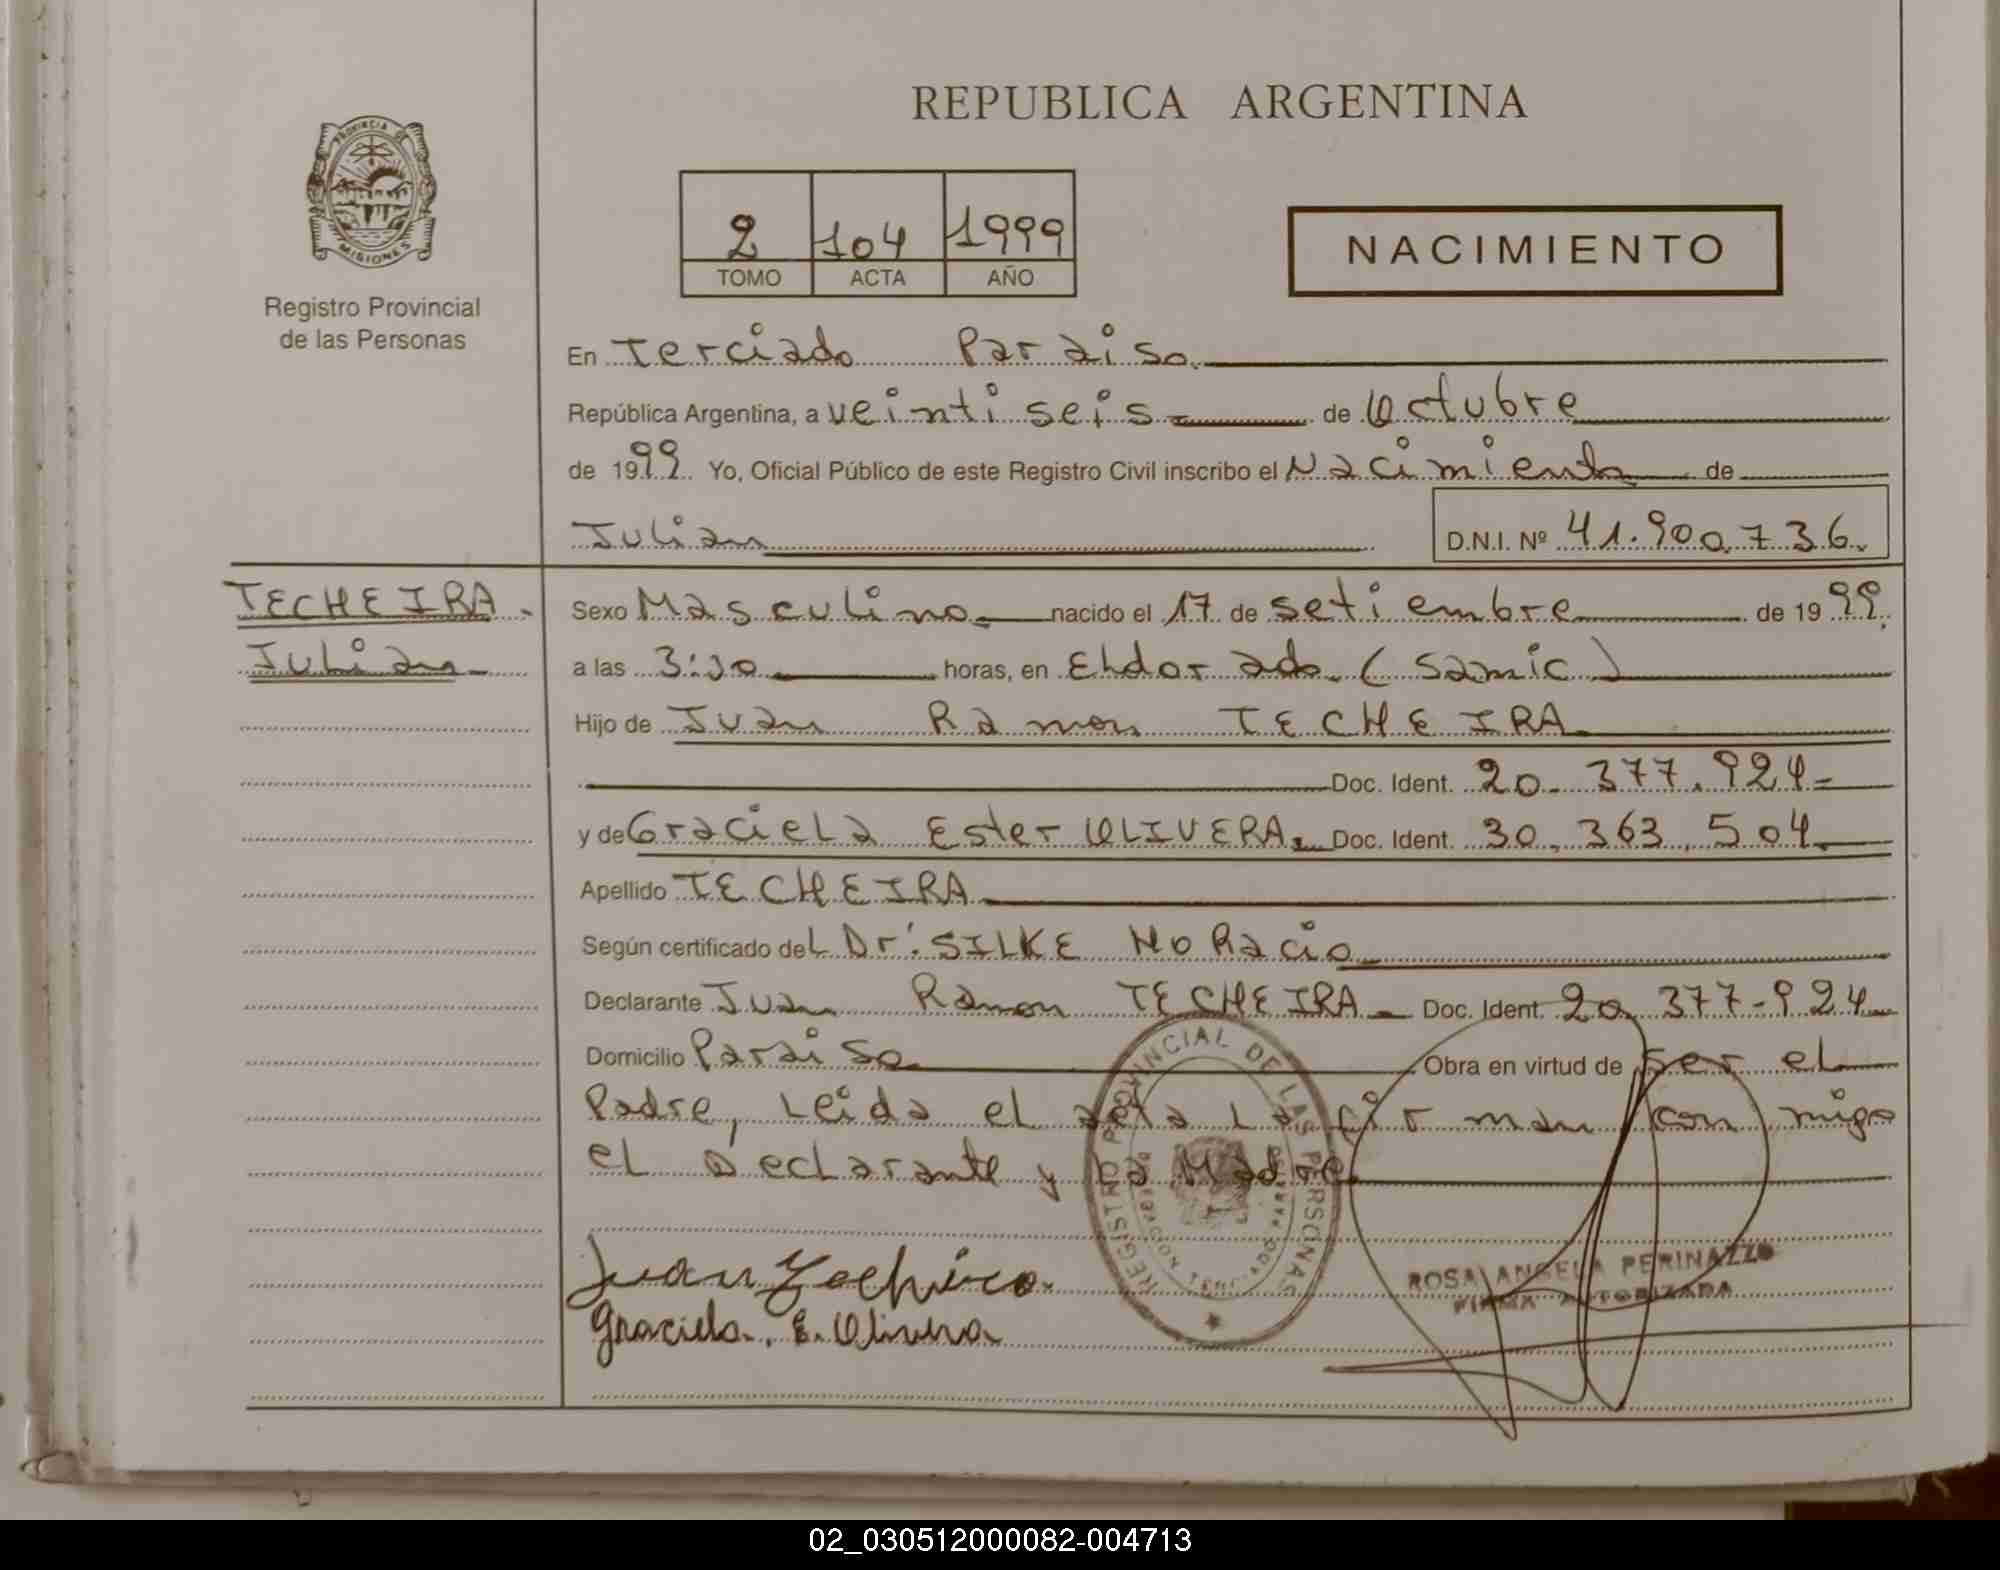 REPUBLICA ARGENTINA
PROVINCIA DE MISIONES
Registro Provincial
de las Personas
2 104 1999
TOMO ACTA AÑO
NACIMIENTO
En Terciado Paraiso.
República Argentina, a veinti seis de Octubre
de 1999. Yo, Oficial Público de este Registro Civil inscribo el Nacimiento de
Julian
D.N.I. Nº 41.900.736.
TECHEIRA.
Julian
Sexo Masculino nacido el 17 de setiembre de 1999.
a las 3:30 horas, en Eldorado. (Samic)
Hijo de Juan Ramon TECHEIRA
Doc. Ident. 20.377.924
y de Graciela Ester OLIVERA. Doc. Ident. 30.363.504.
Apellido TECHEIRA
Según certificado del Dr: SILKE HoRacio
Declarante Juan Ramon TECHEIRA Doc. Ident. 20.377-924
Domicilio Paraiso Obra en virtud de ser el
Padre, Leida el acta La firman con migo
el Declarante y La Madre
REGISTRO PROVINCIAL DE LAS PERSONAS
TERCIADO PARAISO
Juan Techeira
Graciela. E. Olivera
ROSA ANGELA PERINAZZO
FIRMA AUTORIZADA
02_030512000082-004713